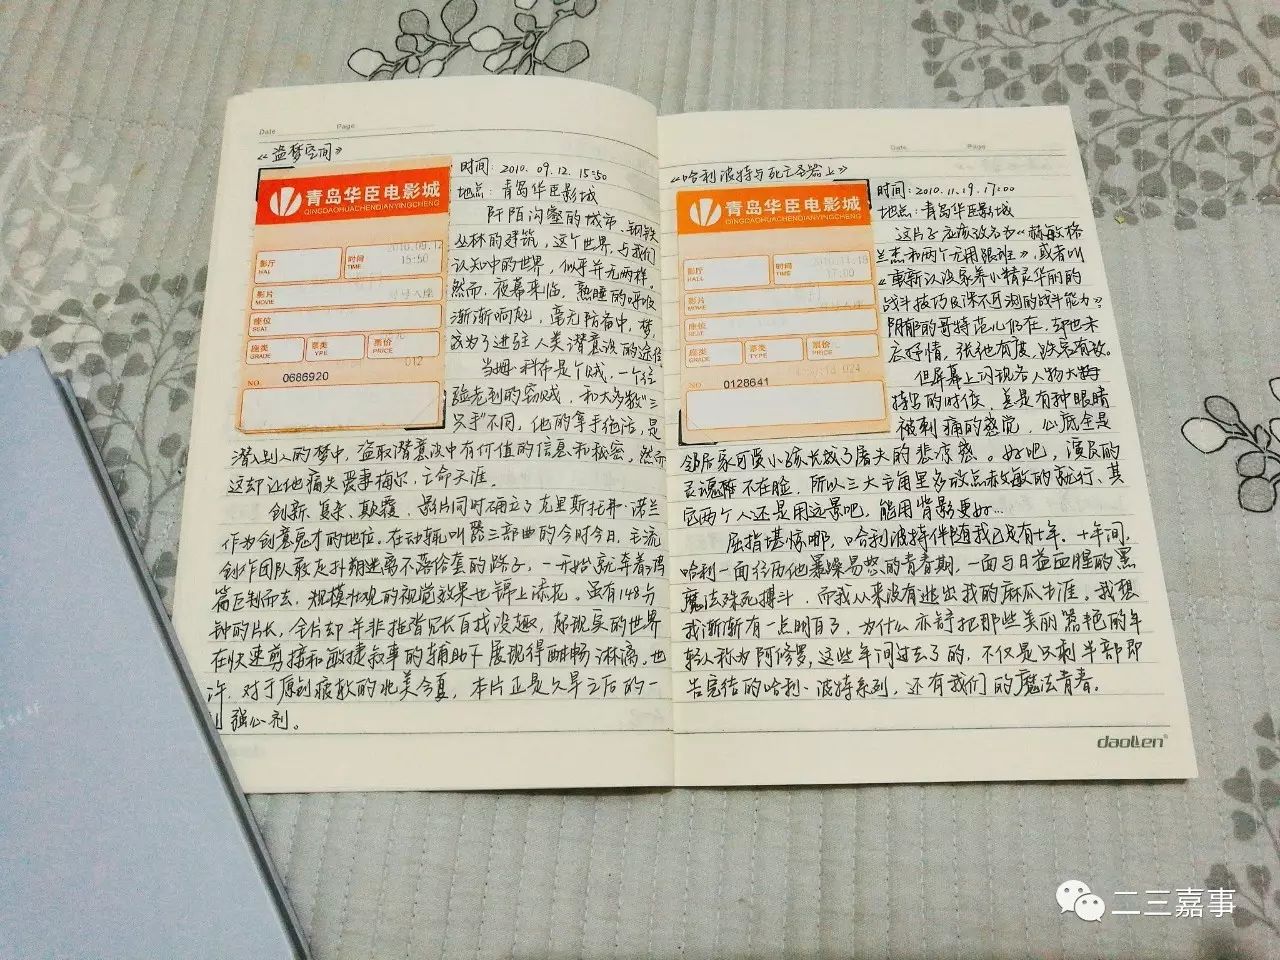 Date
Page
《盗梦空间》
时间：2010.09.12. 15:50
地点：青岛华臣影城
阡陌沟壑的城市、钢铁
丛林的建筑，这个世界，与我们
认知中的世界，似乎并无两样。
然而，夜幕来临，熟睡的呼吸
渐渐响起，毫无防备中，梦，
成为了进驻人类潜意识的途径
当姆·科布是个贼，一个经
验老到的窃贼，和大多数"三
只手"不同，他的拿手绝活，是
潜入别人的梦中，盗取潜意识中有价值的信息和秘密。然而
这却让他痛失爱妻梅尔，亡命天涯。
创新、复杂、颠覆，影片同时确立了克里斯托弗·诺兰
作为创意鬼才的地位。在动辄叫嚣三部曲的今时今日，主流
创作团队敢走扑朔迷离不落俗套的路子，一开始就奔着鸿
篇巨制而去，规模壮观的视觉效果也锦上添花。虽有148分
钟的片长，全片却并非拖沓冗长自找没趣，超现实的世界
在快速剪接和敏捷叙事的辅助下展现得酣畅淋漓。也
许，对于原创疲软的北美今夏，本片正是久旱之后的一
强心剂。
青岛华臣电影城
QINGDAOHUACHENDIANYINGCHENG
2010.09.12
影厅
HALL
时间
TIME
15:50
影片
MOVIE
对号入座
座位
SEAT
座类
GRADE
票类
YPE
票价
PRICE
012
NO.
0686920
Date
Page
《哈利波特与死亡圣器上》
时间：2010.11.19. 17:00
地点：青岛华臣影城
这片子应该改名为《赫敏格
兰杰和两个无用跟班》，或者叫
《重新认识家养小精灵华丽的
战斗技巧及深不可测的战斗能力》
阴郁的哥特范儿仍在，却也未
忘抒情，张弛有度，收容有致。
但屏幕上闪现各人物大
特写的时候，总是有种眼睛
被刺痛的感觉，心底全是
邻居家可爱小孩长成了屠夫的悲凉感。好吧，演员的
灵魂不在脸，所以三大主角里多放点赫敏的就行，其
它两个人还是用远景吧，能用背影更好…
屈指堪惊哪，哈利波特伴随我已没有十年。十年间，
哈利一面经历他暴躁易怒的青春期，一面与日益血腥的黑
魔法殊死搏斗，而我从来没有逃出我的麻瓜生涯。我想
我渐渐有一点明白了，为什么亦舒把那些美丽嚣艳的年
轻人称为阿修罗，这些年间过去了的，不仅是只剩半部即
告完结的哈利·波特系列，还有我们的魔法青春。
青岛华臣电影城
QINGDAOHUACHENDIANYINGCHENG
2010.11.19
影厅
HALL
时间
TIME
17:00
影片
MOVIE
座位
SEAT
座类
GRADE
票类
TYPE
票价
PRICE
024
NO.
0128641
daolen
二三嘉事